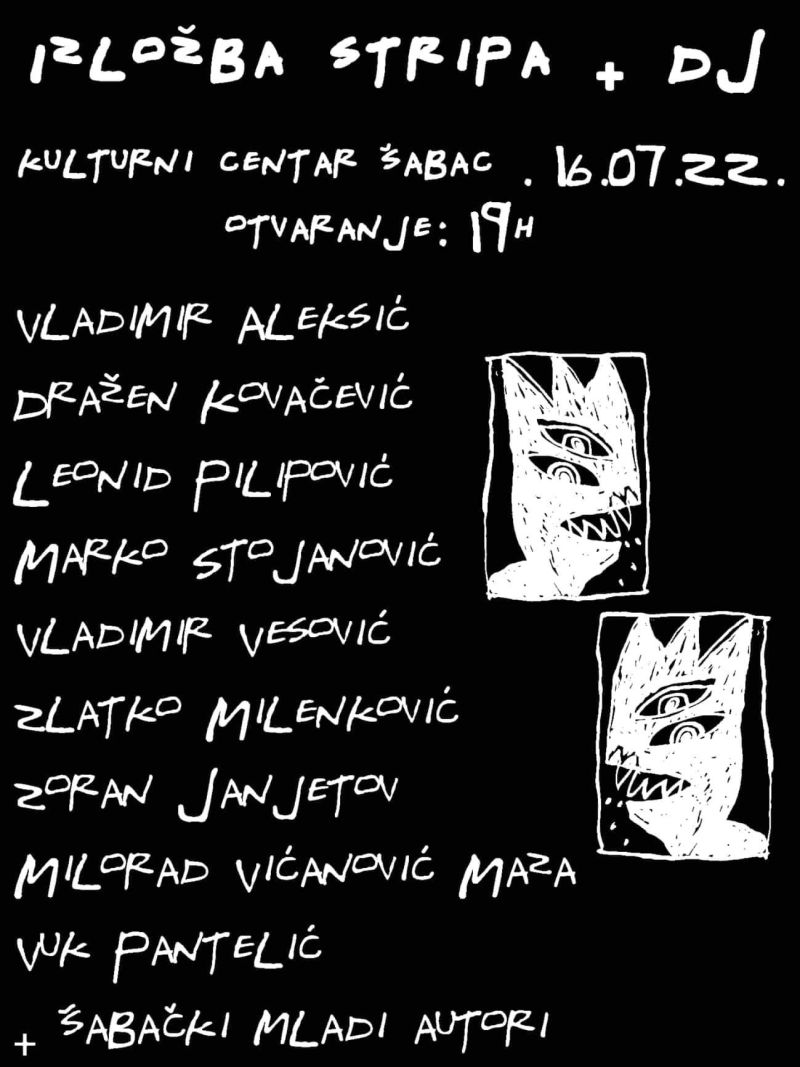 IZLOŽBA STRIPA + DJ
KULTURNI CENTAR ŠABAC . 16.07.22.
OTVARANJE: 19H
VLADIMIR ALEKSIĆ
DRAŽEN KOVAČEVIĆ
LEONID PILIPOVIĆ
MARKO STOJANOVIĆ
VLADIMIR VESOVIĆ
ZLATKO MILENKOVIĆ
ZORAN JANJETOV
MILORAD VIĆANOVIĆ MAZA
VUK PANTELIĆ
+ ŠABAČKI MLADI AUTORI